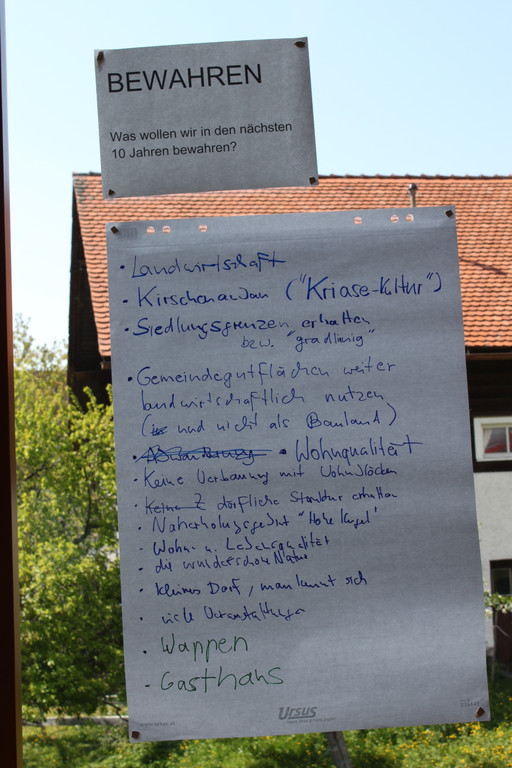 BEWAHREN
Was wollen wir in den nächsten
10 Jahren bewahren?
• Landwirtschaft
• Kirschenanbau ("Kriase-Kultur")
• Siedlungsgrenzen erhalten
bzw. "gradlinig"
• Gemeindegutflächen weiter
landwirtschaftlich nutzen
( und nicht als Bauland)
• • Wohnqualität
• Keine Verbauung mit Wohnblöcken
• Keine Z dörfliche Struktur erhalten
• Naherholungsgebiet "Hohe Kugel"
• Wohn- u. Lebensqualität
• die wunderschöne Natur
• kleines Dorf, man kennt sich
• viele Veranstaltungen
• Wappen
• Gasthaus
www.ursus.at
Ursus